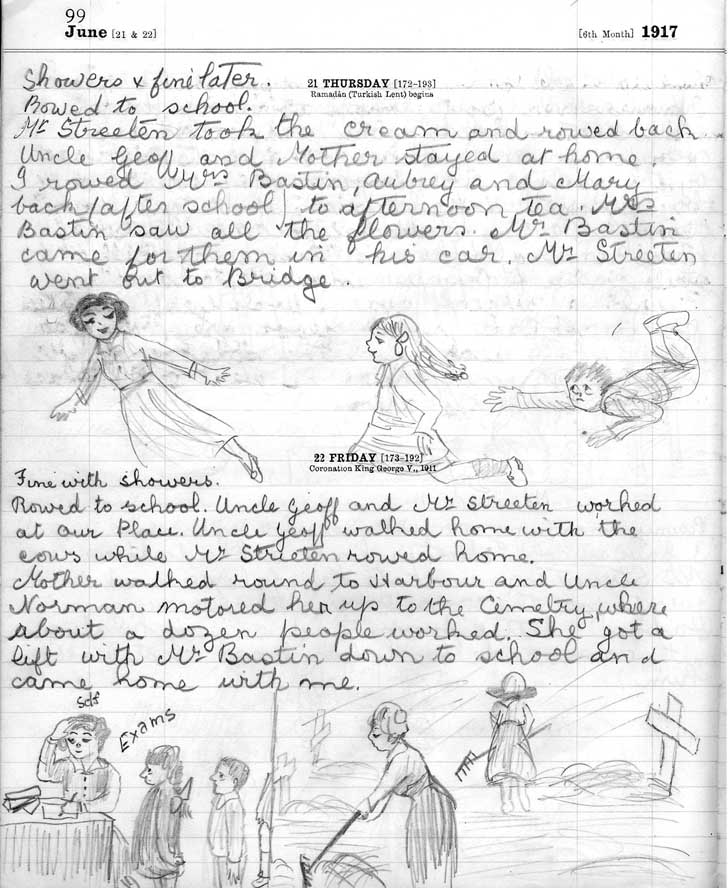 99
June [21 & 22] [6th Month] 1917
Showers & fine later. 21 THURSDAY [172-193]
Ramadân (Turkish Lent) begins
Rowed to school.
Mr Streeten took the cream and rowed back.
Uncle Geoff and Mother stayed at home.
I rowed Mrs Bastin, Aubrey and Mary
back (after school) to afternoon tea. Mrs
Bastin saw all the flowers. Mr Bastin
came for them in his car. Mr Streeten
went out to Bridge.
22 FRIDAY [173-192]
Coronation King George V., 1911
Fine with showers.
Rowed to school. Uncle Geoff and Mr Streeten worked
at our Place. Uncle Geoff walked home with the
cows while Mr Streeten rowed home.
Mother walked round to Harbour and Uncle
Norman motored her up to the Cemetry, where
about a dozen people worked. She got a
lift with Mr Bastin down to school and
came home with me.
Self
Exams